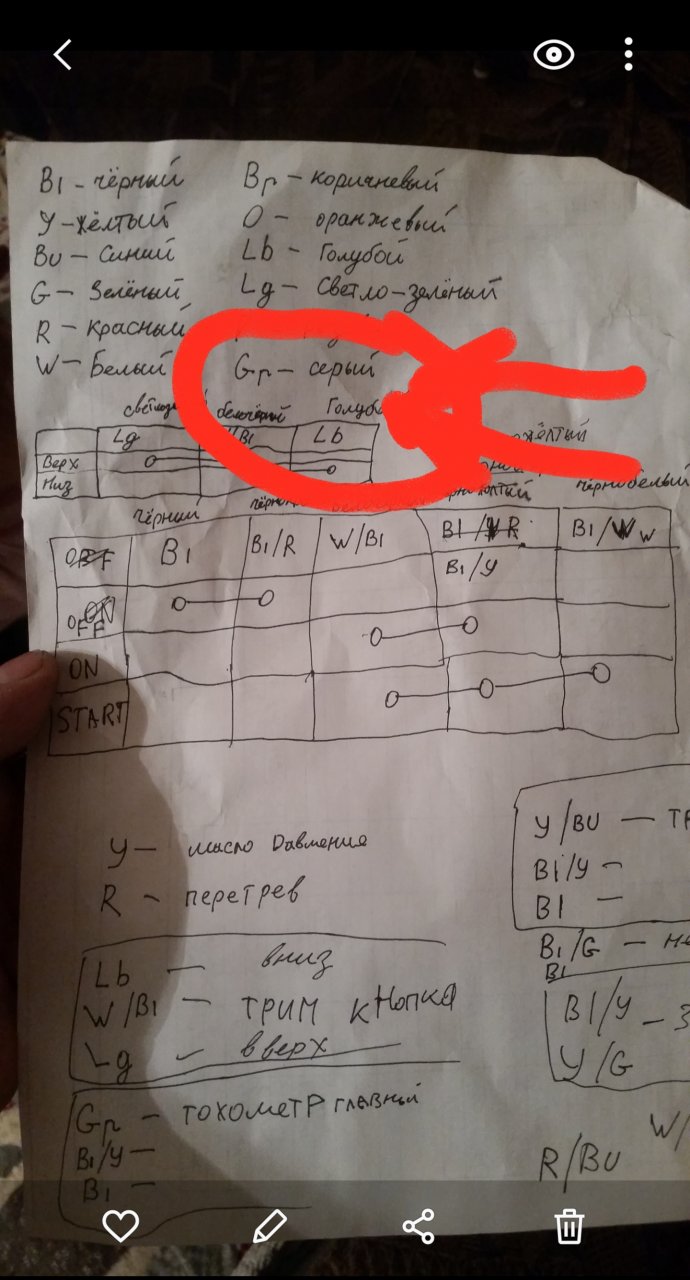 Bl - чёрный Br - коричневый
Y - жёлтый O - оранжевый
Bu - Синий Lb - Голубой
G - Зелёный Lg - Светло-зелёный
R - красный
W - Белый Gr - серый
белочёрный
Lg Lb
Верх
Низ
чёрный чёрнобелый
OFF Bl Bl/R W/Bl Bl/R Bl/W w
Bl/Y
OFF
ON
START
Y - масло Давления
R - перетрев
Lb - вниз
W/Bl - ТРИМ КНОПКА
Lg - вверх
Gr - тохометр главный
Bl/Y -
Bl -
Y/BU -
Bl/Y -
Bl -
Bl/G -
Bl
Bl/Y -
Y/G
W/
R/BU